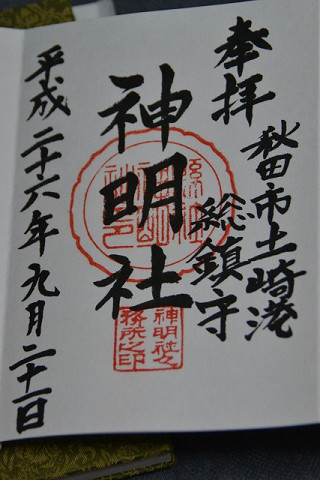 奉拝
秋田市土崎港
総鎮守
神明社
神明社
務所之印
平成二十六年九月二十一日